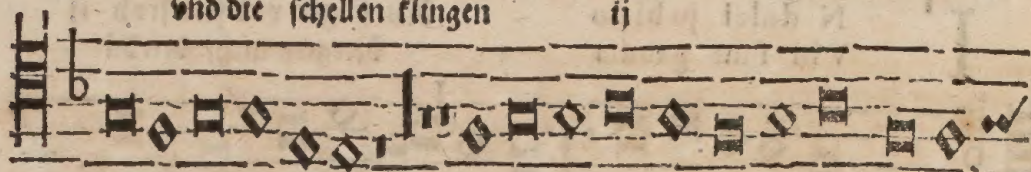 vnd die schellen klingen ij